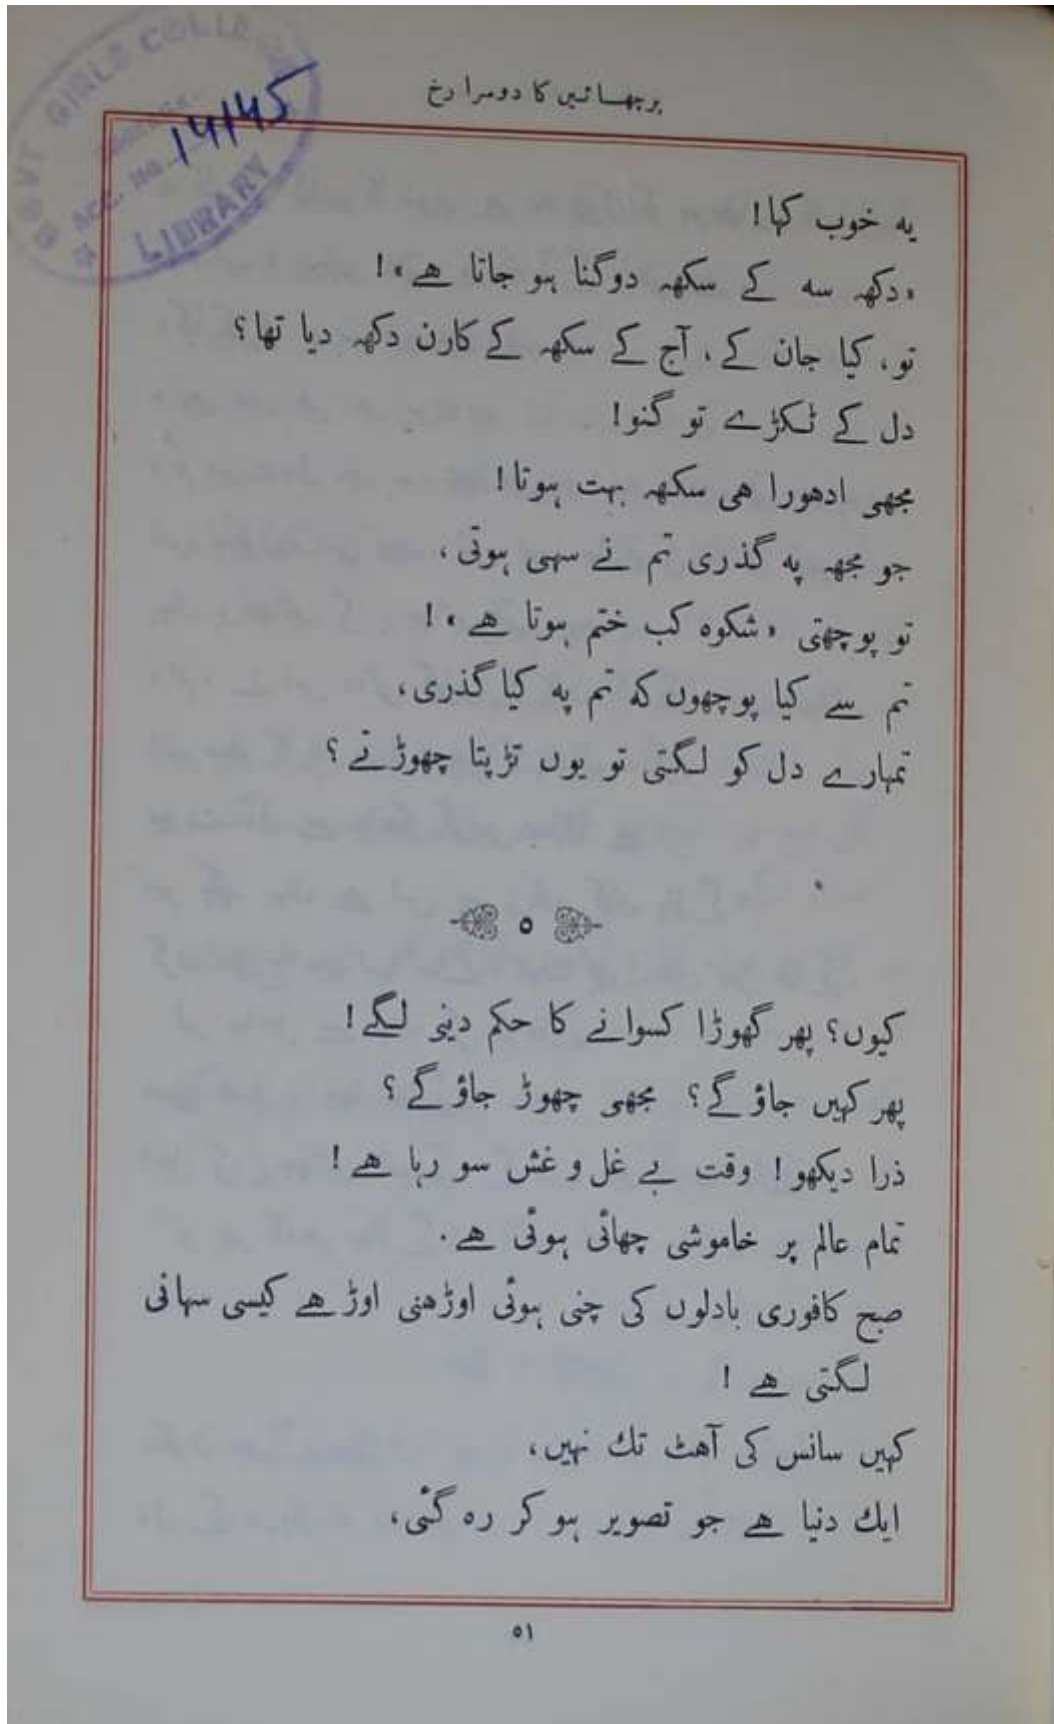 GIRLS COLLE
ACC. No. 14145
LIBRARY
پرچھائیں کا دوسرا رخ
یہ خوب کہا!
«دکھہ سہ کے سکھہ دوگنا ہو جاتا ہے»!
تو، کیا جان کے، آج کے سکھہ کے کارن دکھہ دیا تھا؟
دل کے ٹکڑے تو گنو!
مجھی ادھورا ھی سکھہ بہت ہوتا!
جو مجھہ پہ گذری تم نے سہی ہوتی،
تو پوچھتی «شکوہ کب ختم ہوتا ھے»!
تم سے کیا پوچھوں کہ تم پہ کیا گذری،
تمہارے دل کو لگتی تو یوں تڑپتا چھوڑتے؟
۵
کیوں؟ پھر گھوڑا کسوانے کا حکم دینی لگے!
پھر کہیں جاؤ گے؟ مجھی چھوڑ جاؤ گے؟
ذرا دیکھو! وقت بے غل و غش سو رہا ھے!
تمام عالم پر خاموشی چھائی ہوئی ھے.
صبح کافوری بادلوں کی چنی ہوئی اوڑھنی اوڑھے کیسی سہانی
لگتی ھے!
کہیں سانس کی آھٹ تك نہیں،
ايك دنیا ھے جو تصویر ہو کر رہ گئی،
۵۱